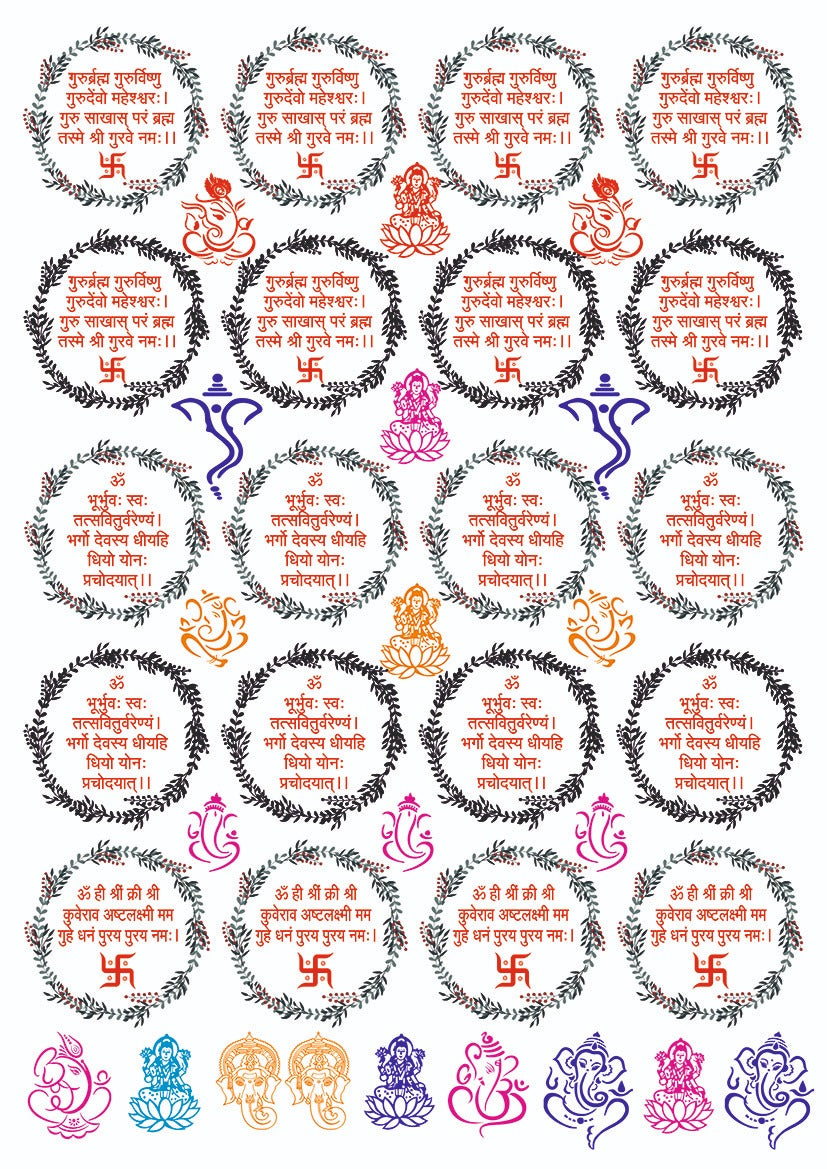 गुरुर्ब्रह्म गुरुर्विष्णु
गुरुदेंवो महेश्वरः।
गुरु साखास् परं ब्रह्म
तस्मे श्री गुरवे नमः।।
गुरुर्ब्रह्म गुरुर्विष्णु
गुरुदेंवो महेश्वरः।
गुरु साखास् परं ब्रह्म
तस्मे श्री गुरवे नमः।।
गुरुर्ब्रह्म गुरुर्विष्णु
गुरुदेंवो महेश्वरः।
गुरु साखास् परं ब्रह्म
तस्मे श्री गुरवे नमः।।
गुरुर्ब्रह्म गुरुर्विष्णु
गुरुदेंवो महेश्वरः।
गुरु साखास् परं ब्रह्म
तस्मे श्री गुरवे नमः।।
गुरुर्ब्रह्म गुरुर्विष्णु
गुरुदेंवो महेश्वरः।
गुरु साखास् परं ब्रह्म
तस्मे श्री गुरवे नमः।।
गुरुर्ब्रह्म गुरुर्विष्णु
गुरुदेंवो महेश्वरः।
गुरु साखास् परं ब्रह्म
तस्मे श्री गुरवे नमः।।
गुरुर्ब्रह्म गुरुर्विष्णु
गुरुदेंवो महेश्वरः।
गुरु साखास् परं ब्रह्म
तस्मे श्री गुरवे नमः।।
गुरुर्ब्रह्म गुरुर्विष्णु
गुरुदेंवो महेश्वरः।
गुरु साखास् परं ब्रह्म
तस्मे श्री गुरवे नमः।।
ॐ
भूर्भुवः स्वः
तत्सवितुर्वरेण्यं।
भर्गो देवस्य धीयहि
धियो योनः
प्रचोदयात्।।
ॐ
भूर्भुवः स्वः
तत्सवितुर्वरेण्यं।
भर्गो देवस्य धीयहि
धियो योनः
प्रचोदयात्।।
ॐ
भूर्भुवः स्वः
तत्सवितुर्वरेण्यं।
भर्गो देवस्य धीयहि
धियो योनः
प्रचोदयात्।।
ॐ
भूर्भुवः स्वः
तत्सवितुर्वरेण्यं।
भर्गो देवस्य धीयहि
धियो योनः
प्रचोदयात्।।
ॐ
भूर्भुवः स्वः
तत्सवितुर्वरेण्यं।
भर्गो देवस्य धीयहि
धियो योनः
प्रचोदयात्।।
ॐ
भूर्भुवः स्वः
तत्सवितुर्वरेण्यं।
भर्गो देवस्य धीयहि
धियो योनः
प्रचोदयात्।।
ॐ
भूर्भुवः स्वः
तत्सवितुर्वरेण्यं।
भर्गो देवस्य धीयहि
धियो योनः
प्रचोदयात्।।
ॐ
भूर्भुवः स्वः
तत्सवितुर्वरेण्यं।
भर्गो देवस्य धीयहि
धियो योनः
प्रचोदयात्।।
ॐ ही श्रीं क्री श्री
कुवेराव अष्टलक्ष्मी मम
गुहे धनं पुरय पुरय नमः।
ॐ ही श्रीं क्री श्री
कुवेराव अष्टलक्ष्मी मम
गुहे धनं पुरय पुरय नमः।
ॐ ही श्रीं क्री श्री
कुवेराव अष्टलक्ष्मी मम
गुहे धनं पुरय पुरय नमः।
ॐ ही श्रीं क्री श्री
कुवेराव अष्टलक्ष्मी मम
गुहे धनं पुरय पुरय नमः।